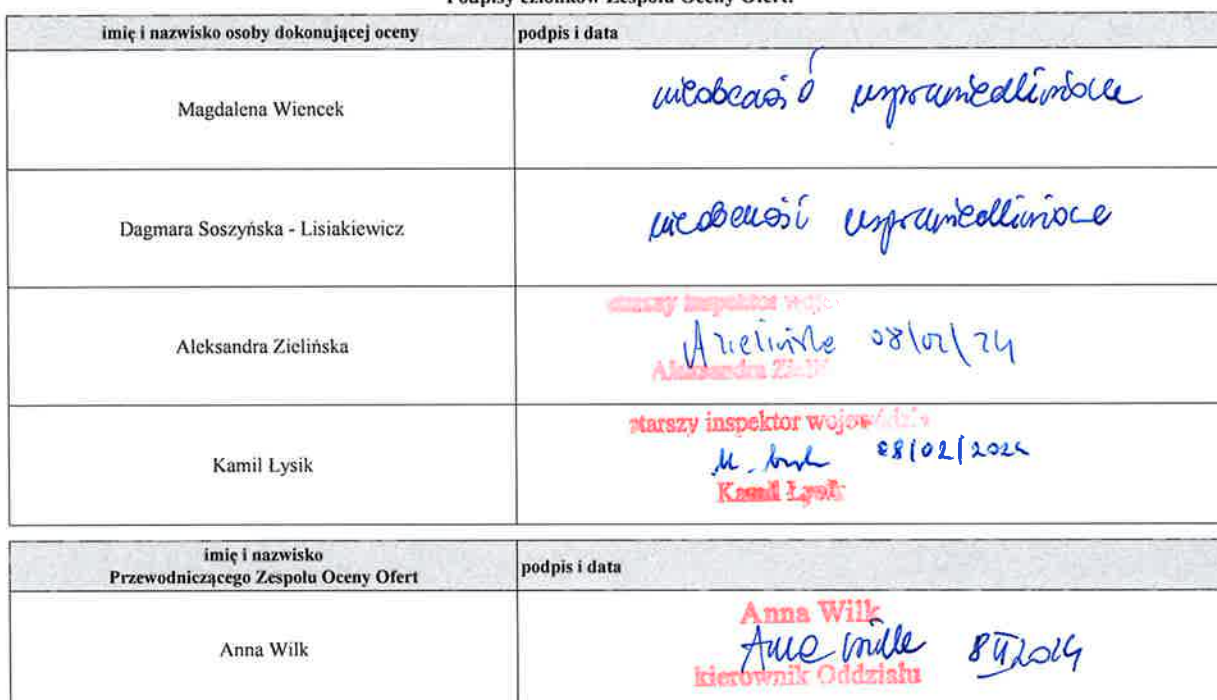 Podpisy członków Zespołu Oceny Ofert
imię i nazwisko osoby dokonującej oceny
podpis i data
Magdalena Wiencek
nieobecność usprawiedliwiona
Dagmara Soszyńska - Lisiakiewicz
nieobecność usprawiedliwiona
Aleksandra Zielińska
starszy inspektor
AZielińska 08/02/24
Aleksandra
Kamil Łysik
starszy inspektor
08/02/2024
Kamil Łysik
imię i nazwisko
Przewodniczącego Zespołu Oceny Ofert
podpis i data
Anna Wilk
Anna Wilk
Anna Wilk 8 II 2024
kierownik Oddziału